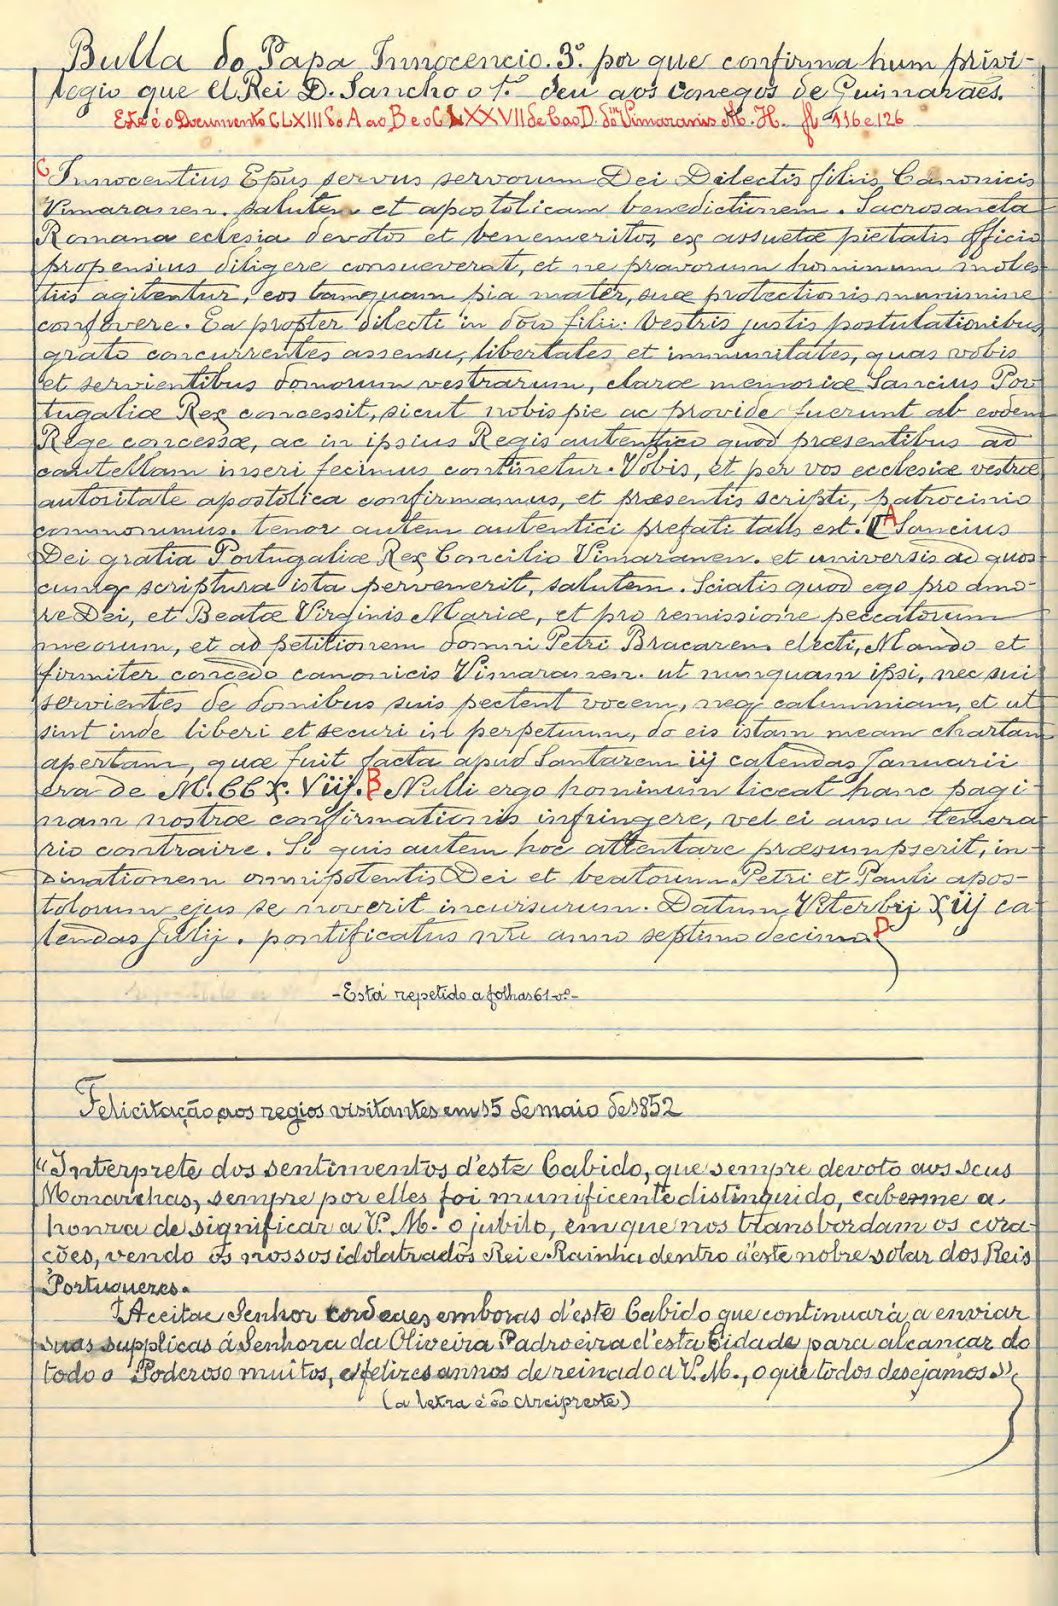 Bulla do Papa Innocencio. 3º. por que confirma hum privi-
legio que el Rei D. Sancho o 1º deu aos conegos de Guimarães.
Este é o Documento CLXIII do A ao B e o CLXXVII de C ao D. do in Vimaranis M. H. fl 116 e 126
C Innocentius Epus servus servorum Dei Dilectis filiis Canonicis
Vimaranen. salutem et apostolicam benedictionem. Sacrosancta
Romana eclesia devotos et benemeritos, ex assuetæ pietatis officio
propensius diligere consueverat, et ne pravorum hominum moles-
tiis agitentur, eos tamquam pia mater, suæ protectionis munimine
confovere. Ea propter dilecti in dõno filii: vestris justis postulationibus
grato concurrentes assensu, libertates et immunitates, quas vobis
et servientibus domorum vestrarum, claræ memoriæ Sancius Por
tugaliæ Rex concessit, sicut nobis pie ac provide fuerunt ab eodem
Rege concessæ, ac in ipsius Regis autentico quod præsentibus ad
cautellam inseri fecimus continetur. Vobis, et per vos ecclesiæ vestræ
autoritate apostolica confirmamus, et præsentis scripti, patrocinio
communimus. tenor autem autentici prefati talis est. A Sancius
Dei gratia Portugaliæ Rex Concilio Vimaranen. et universis ad quos
cumq scriptura ista pervenerit, salutem. Sciatis quod ego pro amo-
re Dei, et Beatæ Virginis Mariæ, et pro remissione peccatorum
meorum, et ad petitionem domni Petri Bracaren. electi, Mando et
firmiter concedo canonicis Vimaranen. ut nunquam ipsi, nec sui
servientes de domibus suis pectent vocem, neq calumniam, et ut
sint inde liberi et securi in perpetuum, do eis istam meam chartam
apertam, quæ fuit facta apud Santarem iij calendas Januarii
era de M. CC X. Viij. B Nulli ergo hominum liceat hanc pagi-
nam nostræ confirmationis infringere, vel ei ausu temera
rio contraire. Si quis autem hoc attentare præsumpserit, in-
dinationem omnipotentis Dei et beatorum Petri et Pauli apos-
tolorum ejus se noverit incursurum. Datum Viterbij Xiij ca-
lendas Julij. pontificatus nri anno septimo decimo. D
-Está repetido a folhas 61 vº-
Felicitação aos regios visitantes em 15 de maio de 1852
"Interprete dos sentimentos d'este Cabido, que sempre devoto aos seus
Monarchas, sempre por elles foi munificente distinguido, cabe-me a
honra de significar a V. M. o jubilo, em que nos transbordam os cora-
ções, vendo os nossos idolatrados Rei e Rainha dentro d'este nobre solar dos Reis
Portuguezes.
Aceitae Senhor cordeaes emboras d'este Cabido que continuará a enviar
suas supplicas á Senhora da Oliveira Padroeira d'esta Cidade para alcançar do
todo o Poderoso muitos, e felizes annos de reinado a V. M., o que todos desejamos."
(a letra é do Arcipreste)